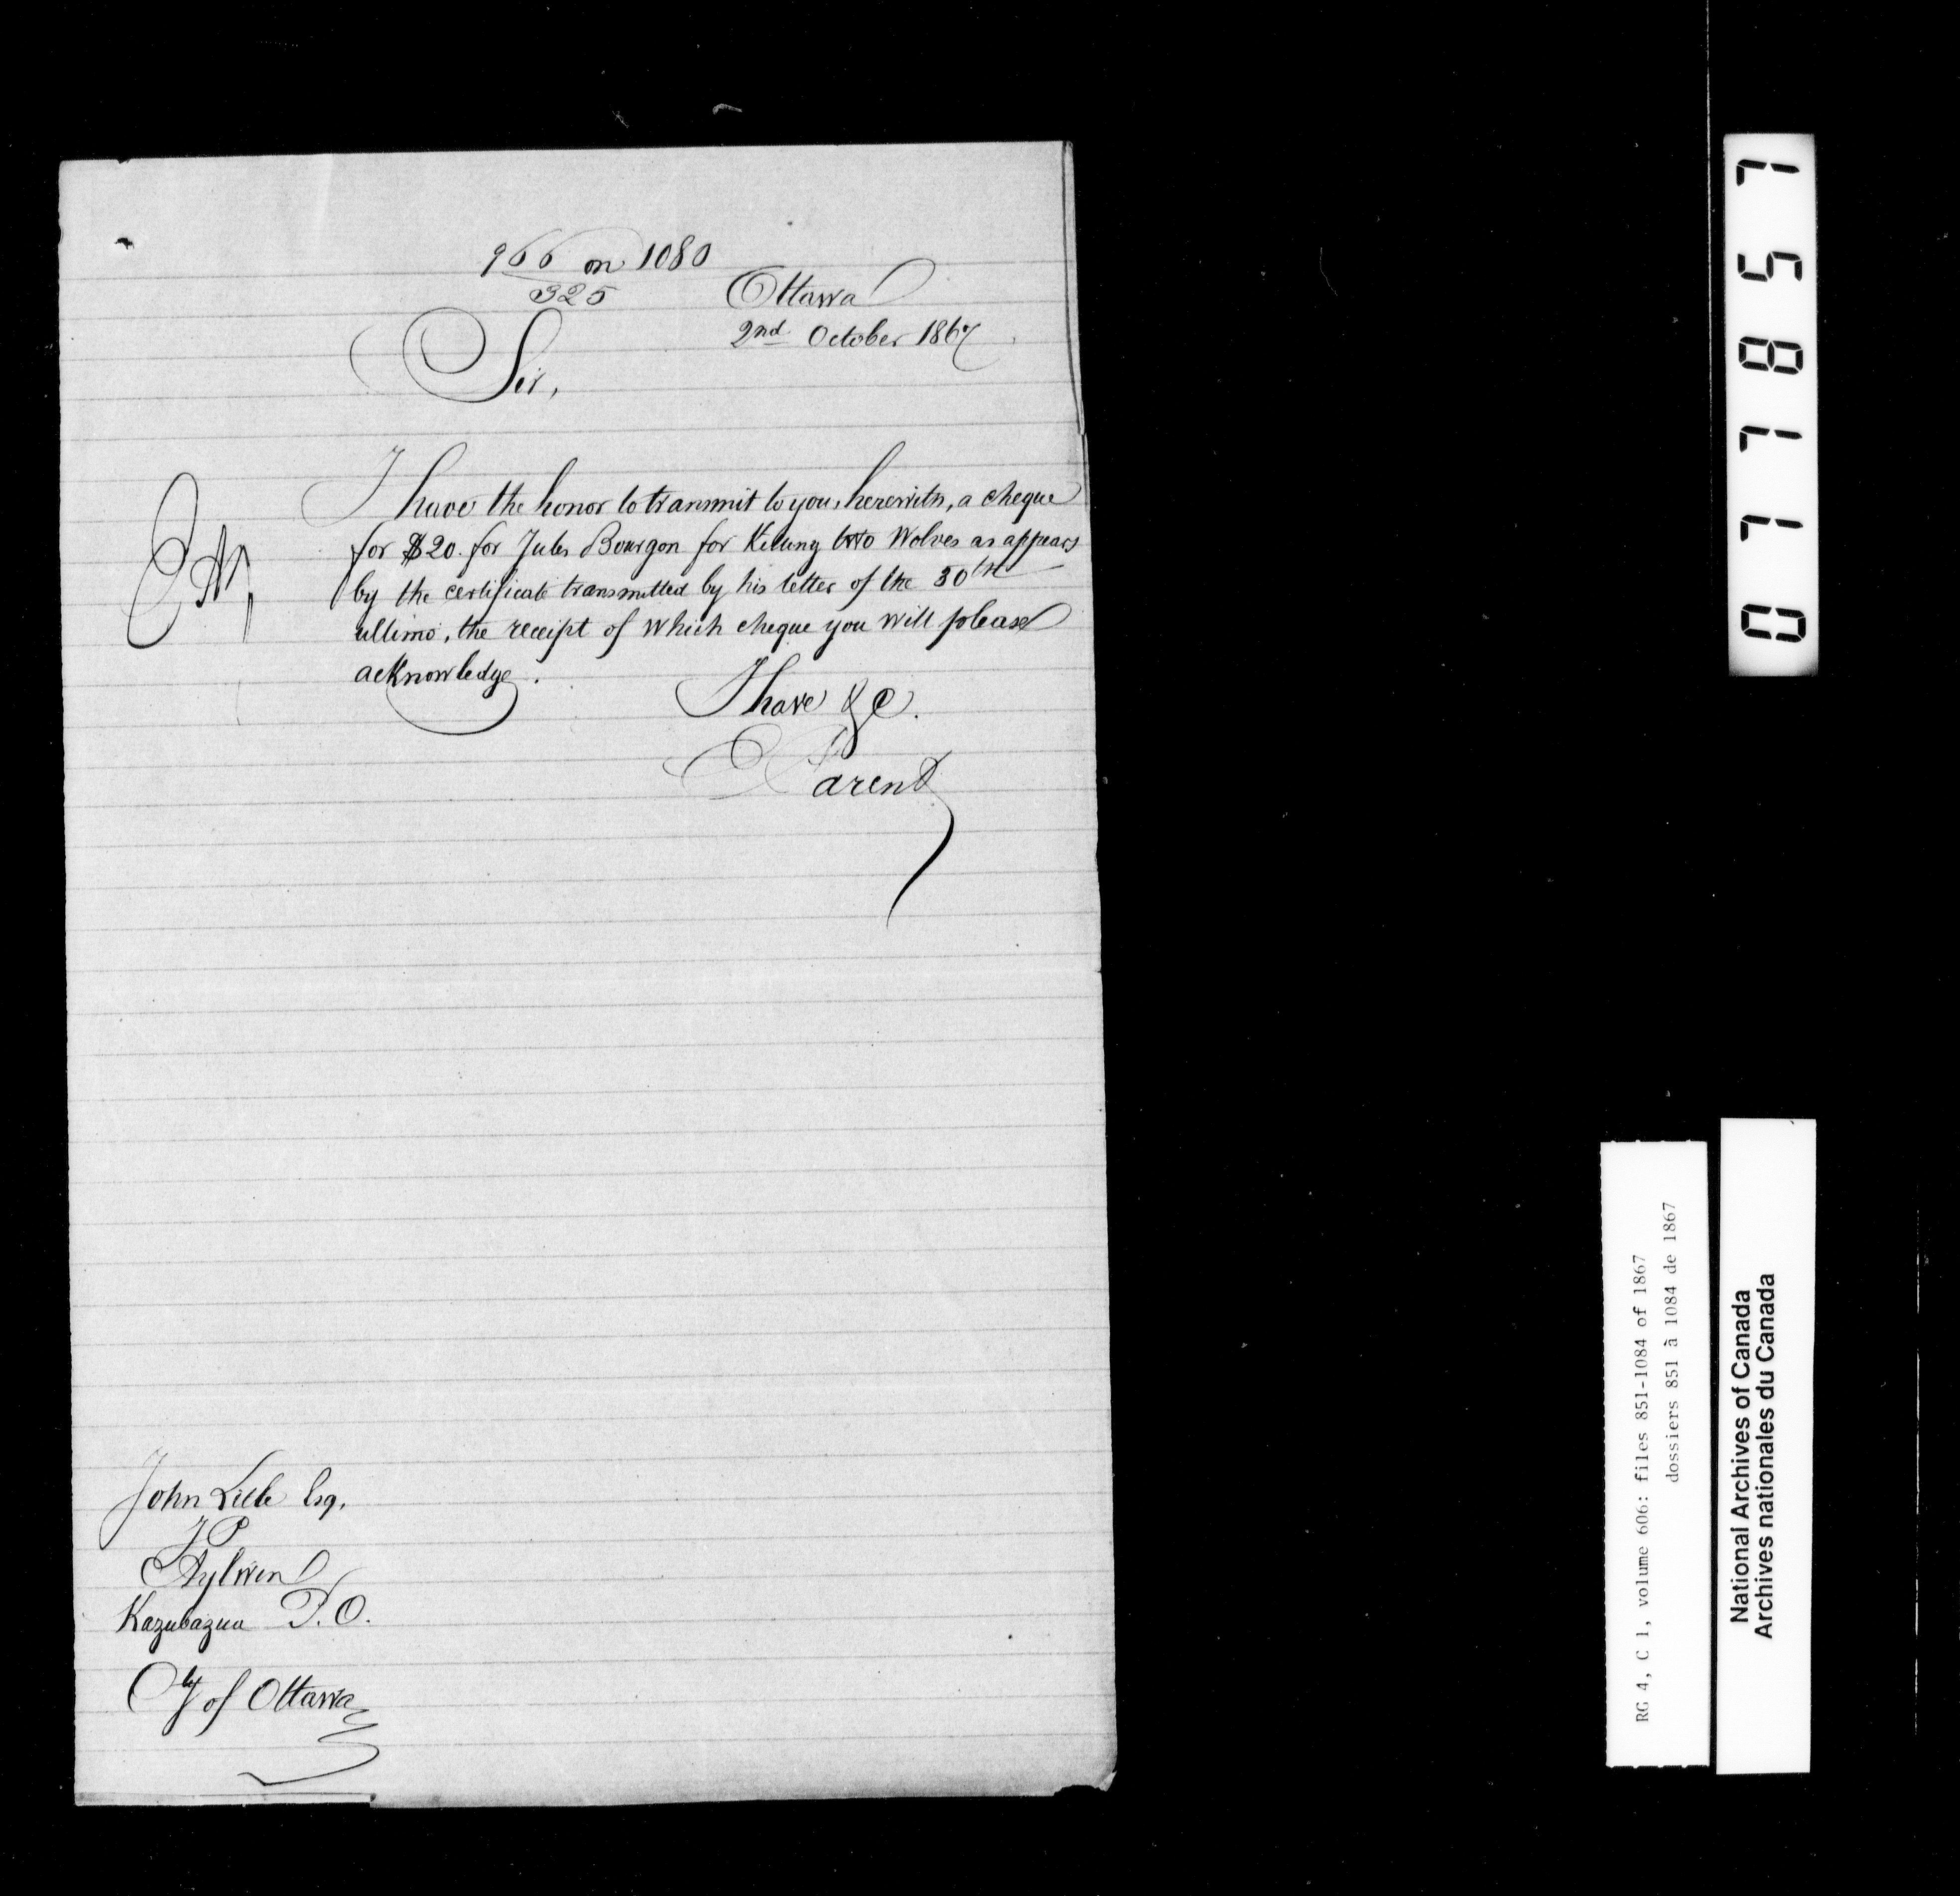 966 on 1080
325
Ottawa
2nd October 1867
Sir,
I have the honor to transmit to you, herewith, a cheque
for $20. for Jules Bourgon for Killing two Wolves as appears
by the certificate transmitted by his letter of the 30th
ultimo, the receipt of which cheque you will please
acknowledge.
I have &c.
Parent
John Little Esq.
J P
Aylwin
Kazubazua P.O.
Cty of Ottawa
077857
RG 4, C 1, volume 606: files 851-1084 of 1867
dossiers 851 à 1084 de 1867
National Archives of Canada
Archives nationales du Canada